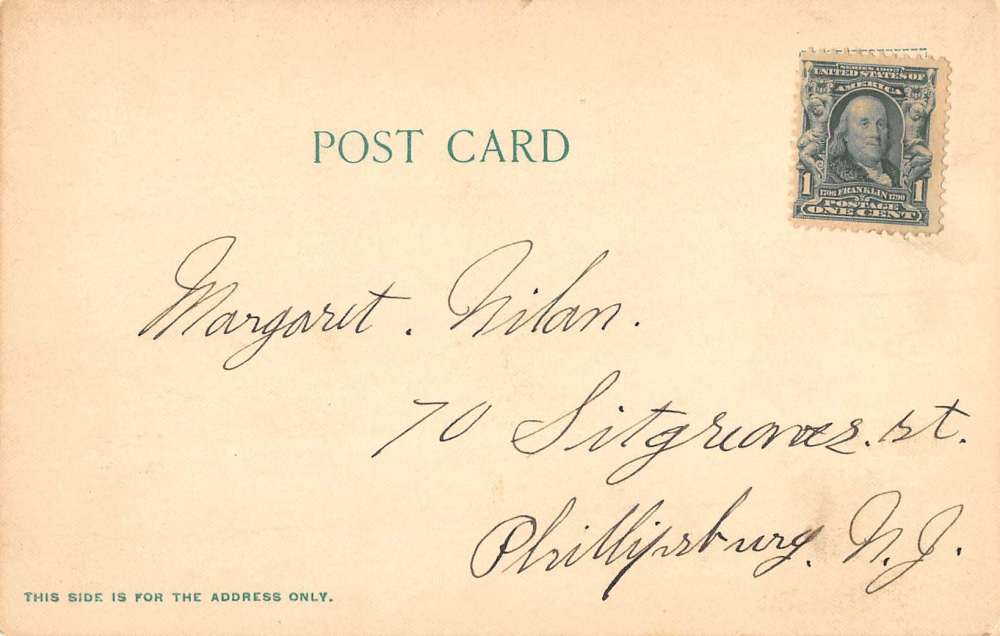 SERIES 1902
UNITED STATES OF
AMERICA
POST CARD
1 1706 FRANKLIN 1790 1
POSTAGE
ONE CENT
Margaret. Nilan.
70 Sitgreaves. st.
Phillipsburg. N. J.
THIS SIDE IS FOR THE ADDRESS ONLY.